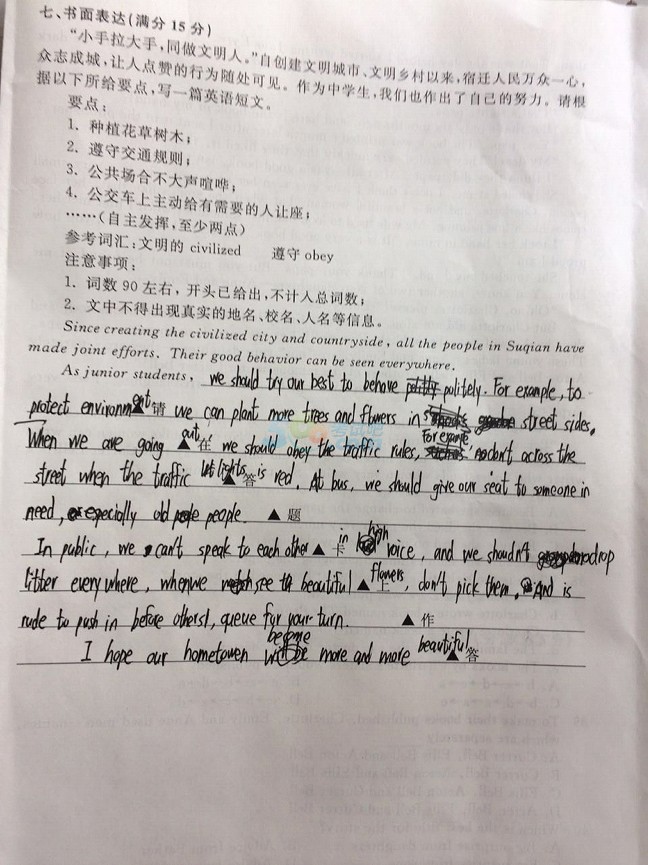 七、书面表达(满分 15 分)
“小手拉大手,同做文明人。”自创建文明城市、文明乡村以来,宿迁人民万众一心,
众志成城,让人点赞的行为随处可见。作为中学生,我们也作出了自己的努力。请根
据以下所给要点,写一篇英语短文。
要点:
1. 种植花草树木;
2. 遵守交通规则;
3. 公共场合不大声喧哗;
4. 公交车上主动给有需要的人让座;
……(自主发挥,至少两点)
参考词汇:文明的 civilized 遵守 obey
注意事项:
1. 词数 90 左右,开头已给出,不计入总词数;
2. 文中不得出现真实的地名、校名、人名等信息。
Since creating the civilized city and countryside, all the people in Suqian have
made joint efforts. Their good behavior can be seen everywhere.
As junior students, we should try our best to behave politely. For example, to
protect environment ▲ 请 we can plant more trees and flowers in street sides.
When we are going out ▲ 在 we should obey the traffic rules, for example, don't across the
street when the traffic lights ▲ 答 is red. At bus, we should give our seat to someone in
need, especially old people. ▲ 题
In public, we can't speak to each other ▲ in 卡 high voice, and we shoudn't drop
litter every where, when we see beautiful ▲ flowers 上, don't pick them, And is
rude to push in before others, queue for your turn. ▲ 作
I hope our hometowen become more and more beautiful ▲ 答